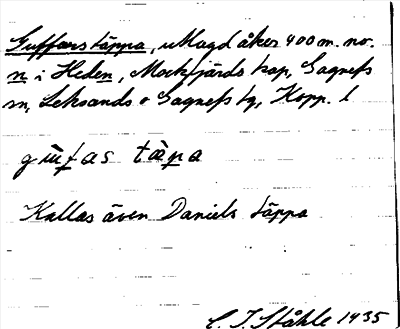 Guffarstäppa, utlagd åker 400 m. no.
n i Heden, Mockfjärds kap, Gagnefs
sn, Leksands o Gagnefs tg, Kopp. l
gu̇fas tȧpa
Kallas även Daniels täppa
C. I. Ståhle 1935